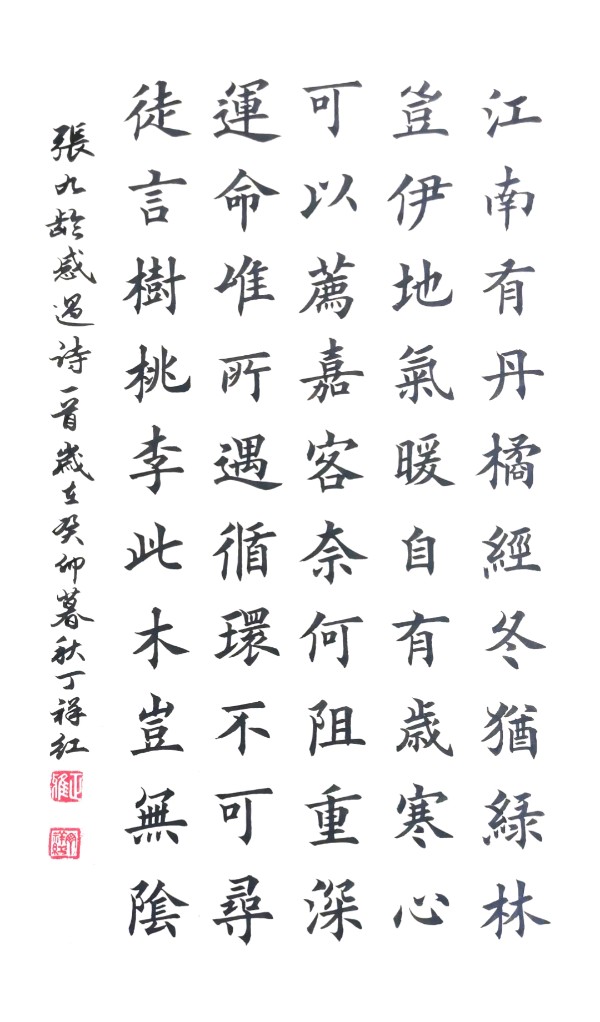 江南有丹橘經冬猶緑林
豈伊地氣暖自有歲寒心
可以薦嘉客奈何阻重深
運命唯所遇循環不可尋
徒言樹桃李此木豈無陰
張九齡感遇詩一首歲在癸卯暮秋丁祥红